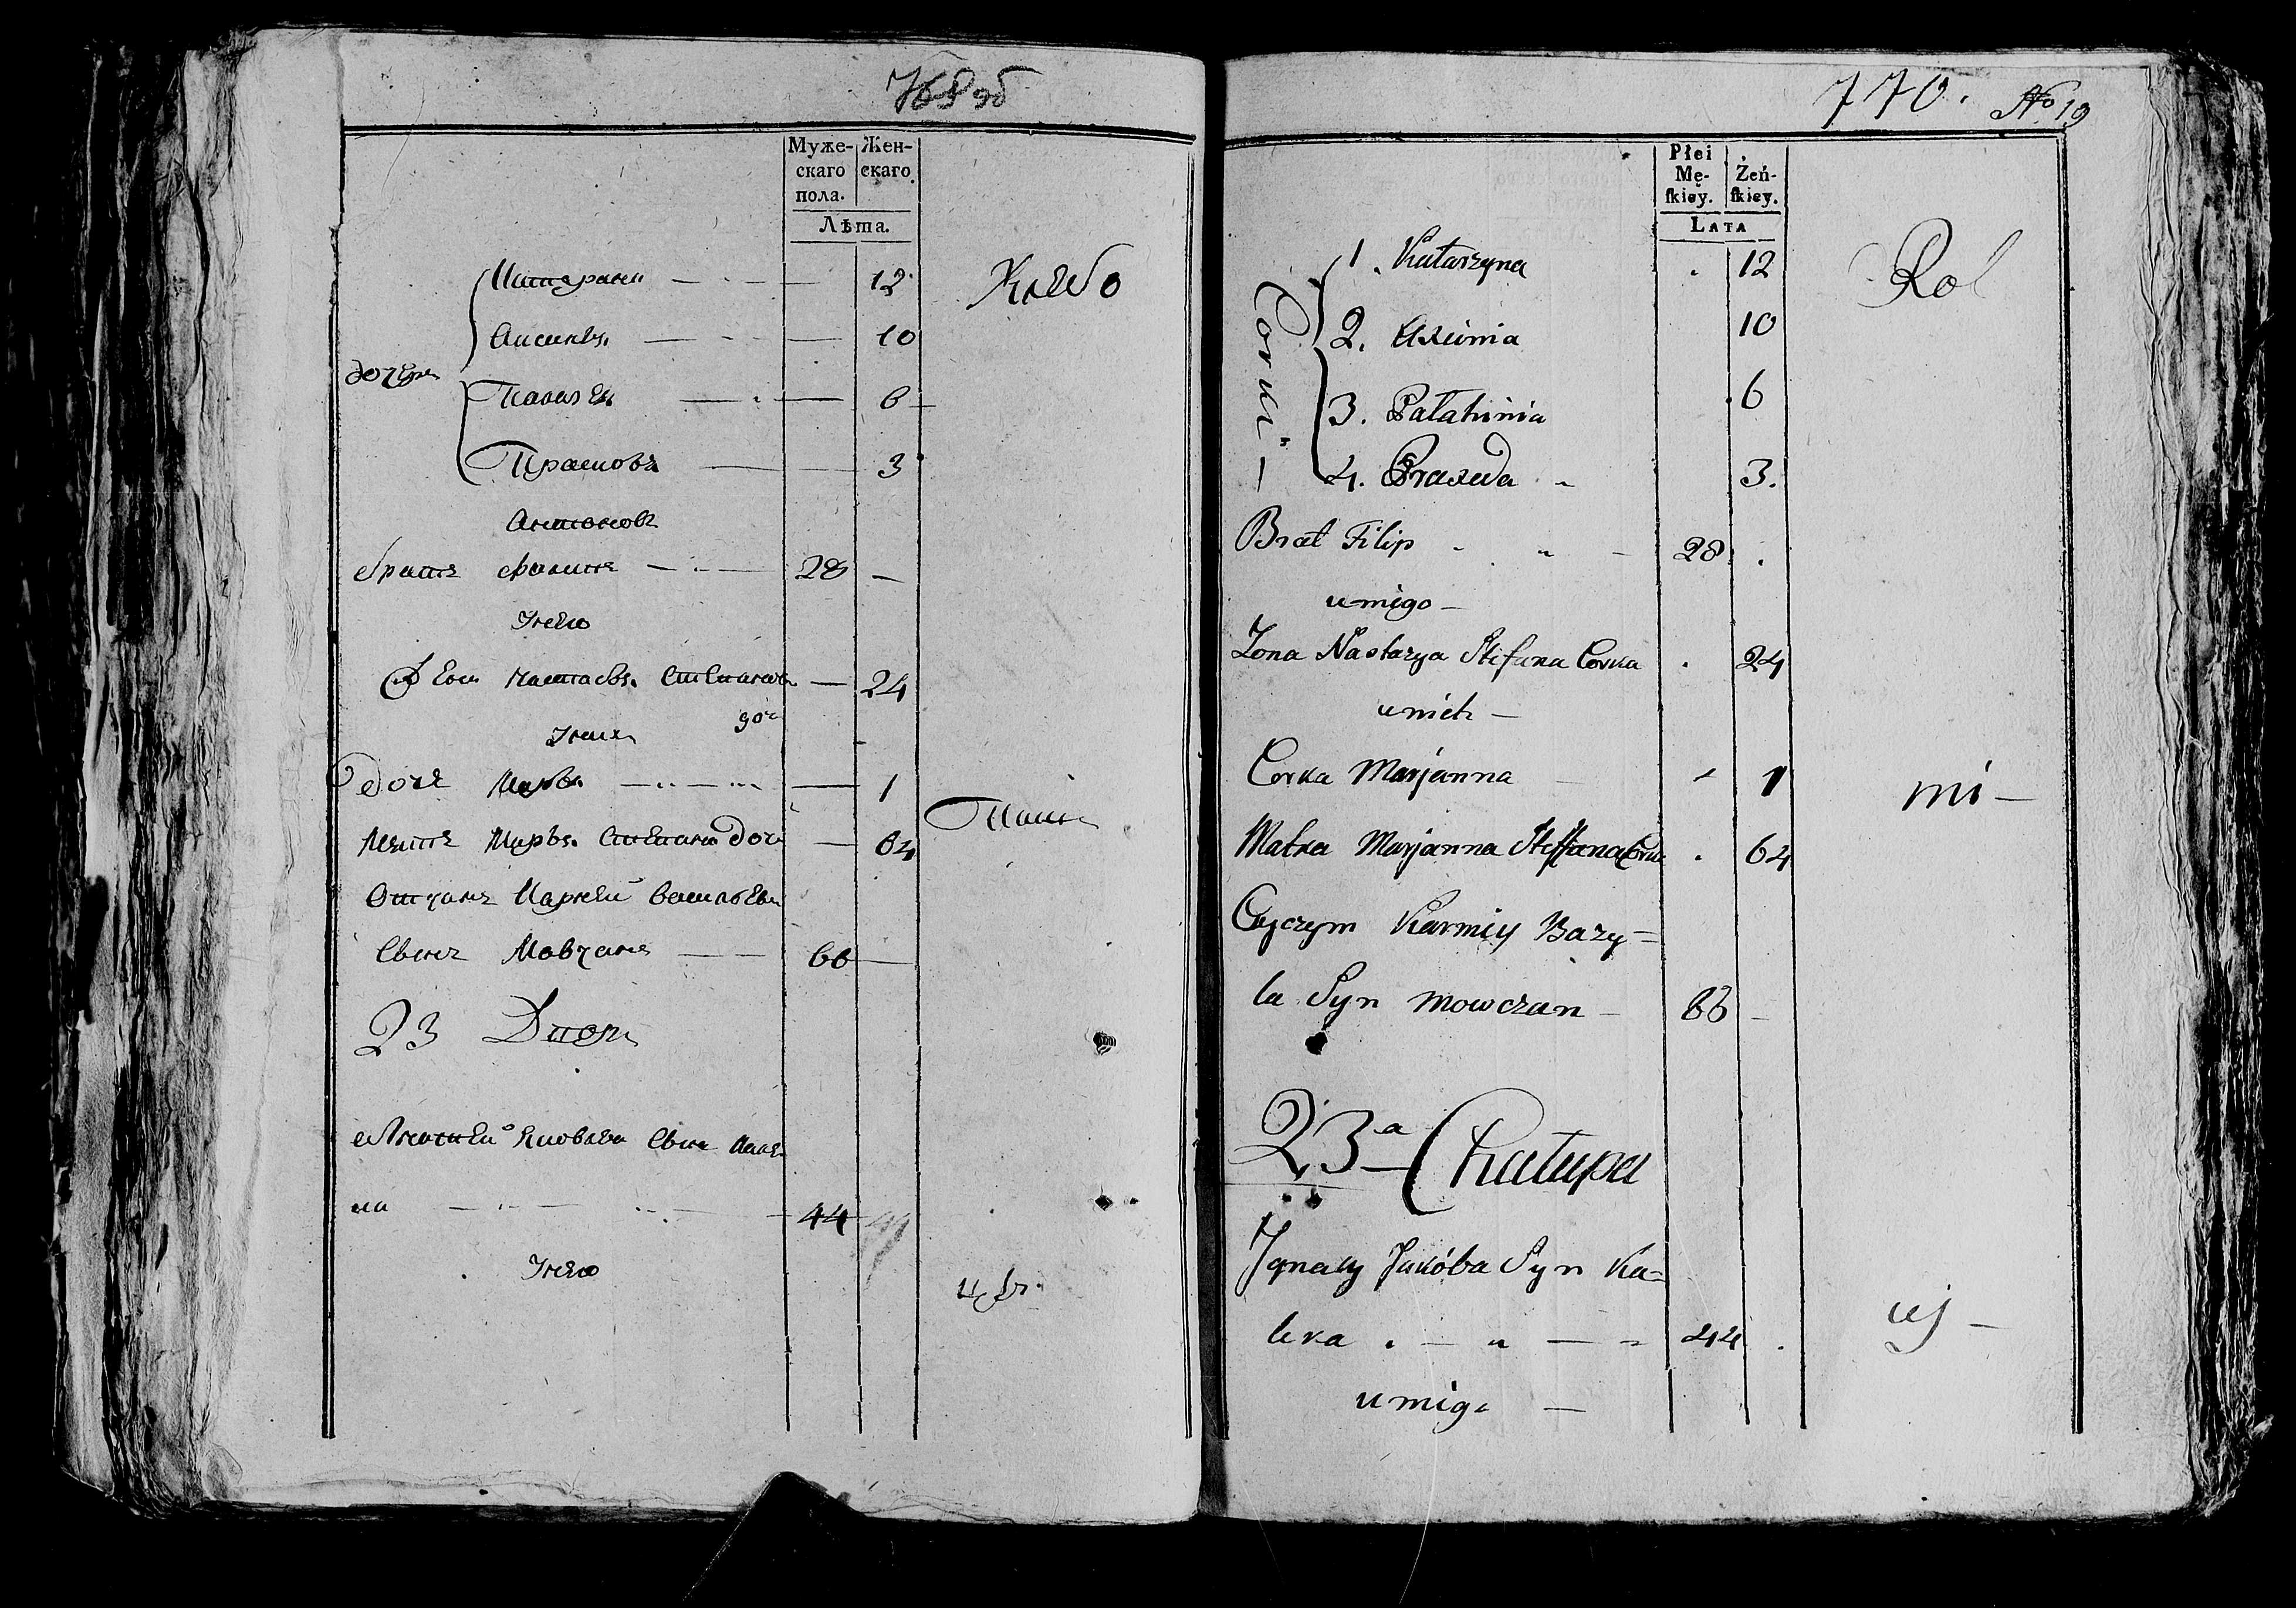 Муже-
скаго
пола.
Жен-
скаго.
Лѣта.
12
Хлѣбо
Аксинья 10
дочери
Палагея 6
Прасковья 3
Антоновъ
братъ Филипъ 28
У него
жена Настасья Степанова 24
доч
У них
дочь Марья 1
Паше
Мать Марья Степана доч 64
Отчимъ Карней Васильевъ
Сынъ Мовчанъ 66
23 Дворъ
Игнатей Яковлевъ Сынъ Кале-
ка 44
У него
770. No 19
Płci
Mę-
ſkiey.
Żeń-
ſkiey.
LATA
1. Katarzyna 12
Rol
2. Axinia 10
Corki
3. Pałahinia 6
4. Praxeda 3.
Brat Filip 28
u niego
Żona Nastazya Stefana Corka 24
u nich
Corka Marjanna 1
mi
Matka Marjanna Steffana Corka 64
Oyczym Karniey Bazy=
la Syn Mowczan 66
23a Chałupa
Ignacy Jakóba Syn Ka=
leka 44
uj
u niego